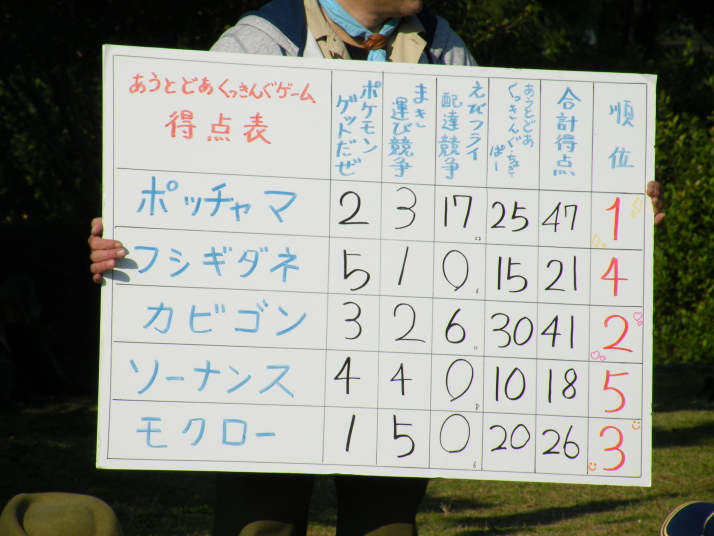 あうとどあくっきんぐゲーム
得点表
ポケモン
ゲットだぜ
まき
運び競争
えびフライ
配達競争
あうとどあ
くっきんぐ・ちぎ
ぱー
合計得点
順位
ポッチャマ 2 3 17 25 47 1
フシギダネ 5 1 0 15 21 4
カビゴン 3 2 6 30 41 2
ソーナンス 4 4 0 10 18 5
モクロー 1 5 0 20 26 3